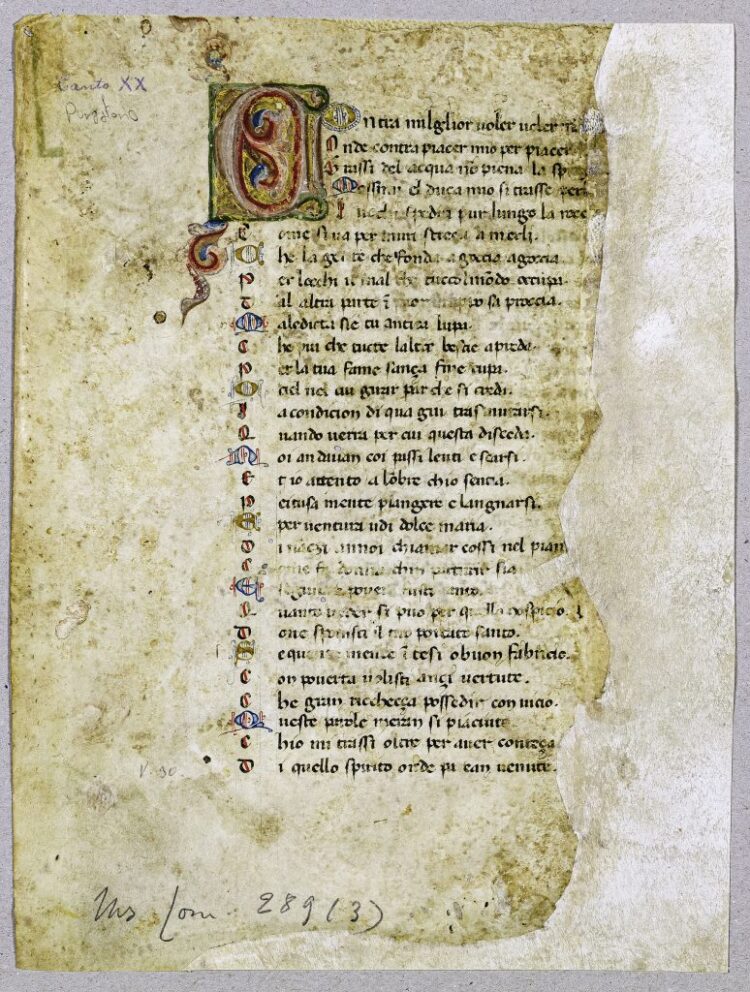 Canto XX
Purgatorio
COntra milglior uoler uoler
Onde contra piacer mio per piacer
Trassi del acqua nō piena la
Mossimi el duca mio si trasse per
pur lungo la
Come si ua per muri a merli.
Che la gente che fonda a goccia a goccia.
Per locchi il mal che tucto lmōdo occupa.
Dal altra parte ī fuor troppo sa procia.
Maledicta sie tu antica lupa.
Che piu che tucte laltre bestie
Per la tua fame sança fine cupa.
O ciel nel cui girar par che si credi.
La condicion di qua giu trasmutarsi.
Quando uerra per cui questa disceda.
Noi andiuan coi passi lenti e scarsi.
Et io attento a lōbre chio sentia.
Pietusa mente piangere e langnarsi.
E per uentura udi dolce maria.
Dinançi annoi chiamar cossi nel pian
Come fa donna chin parturir sia
E pouera
Quanto ueder si puo per quello ospicio.
Doue sponisti il tuo portato santo.
Seguente mente ītesi o buon fabricio.
Con pouerta uolisti ançi uertute.
Che gran ricchecça posseder con uicio.
Queste parole meran si piaciute
Chio mi trassi oltre per auer conteça
Di quello spirito onde
V. 30.
Ms. Lom. 289 (3)